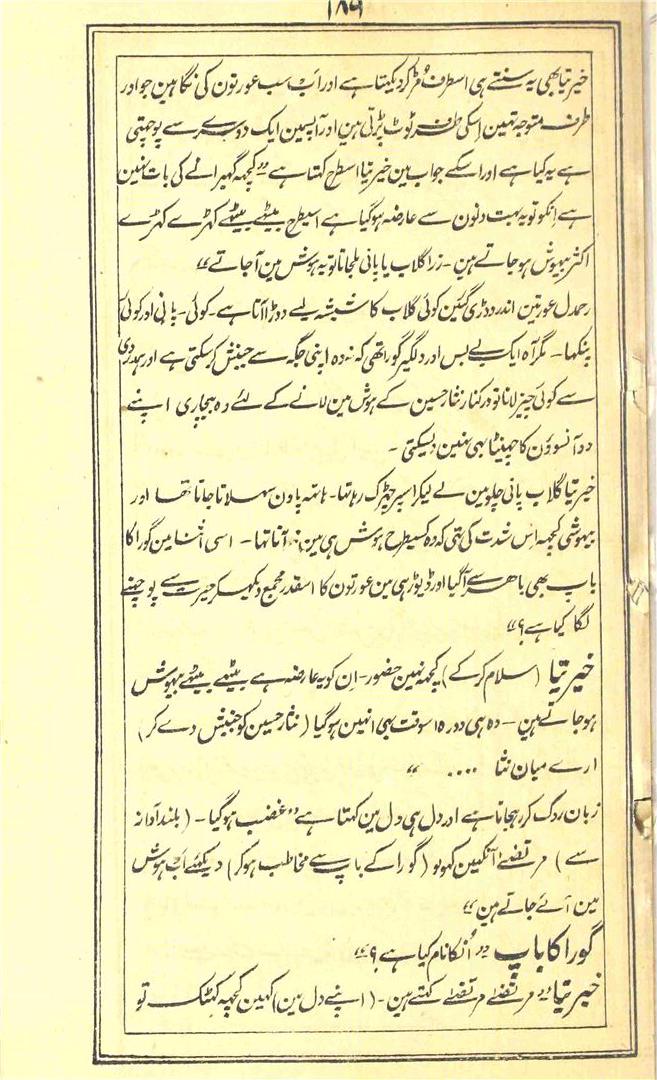 ۱۸۹
خیرتیا بھی یہ سنتے ہی اسطرف مُڑ کر دیکھتا ہے اور اب سب عورتون کی نگاہین جو اور
طرف متوجہ تھین اِسکی طرف ٹوٹ پڑتی ہین اور آپسمین ایک دوسرے سے پوچھتی
ہے یہ کیا ہے اور اسکے جواب مین خیرتیا اسطرح کہتا ہے ״ کچھہ گھبرانے کی بات نہین
ہے اِنکو تو یہ بہت دنون سے عارضہ ہو گیا ہے اسیطرح بیٹھے بیٹھے کھڑے کھڑے
اکثر بیہوش ہو جاتے ہین ۔ زرا گلاب یا پانی ملجاتا تو یہ ہوش مین آ جاتے ״
رحمدل عورتین اندر دوڑی گئین کوئی گلاب کا شیشہ لیے دوڑا آتا ہے ۔ کوئی ۔ پانی اور کوئی
پنکھا ۔ مگر آہ ایک بے بس اور دلگیر گورا تھی کہ نہ وہ اپنی جگہ سے جنبش کر سکتی ہے اور ہمدردی
سے کوئی چیز لانا تو درکنار نثار حسین کے ہوش مین لانے کے لئے وہ بیچاری اپنے
دو آنسوؤن کا چھینٹا بھی نہین دیسکتی ۔
خیرتیا گلاب پانی چلو مین لے لیکر اسپر چھڑک رہا تھا ۔ ہاتھہ پاون سہلاتا جاتا تھا اور
بیہوشی کچھہ اس شدت کی تھی کہ وہ کسیطرح ہوش ہی مین نہ آتا تھا ۔ اسی اثنا مین گورا کا
باپ بھی باھر سے آگیا اور ڈیوڑہی مین عورتون کا اسقدر مجمع دیکھہ کر حیرت سے پوچھنے
لگا کیا ہے؟ ״
خیرتیا (سلام کر کے) کچھہ نہین حضور ۔ اِن کو یہ عارضہ ہے بیٹھے بیٹھے بیہوش
ہو جاتے ہین ۔ وہ ہی دورہ اسوقت بھی انہین ہو گیا (نثار حسین کو جنبش دے کر)
ارے میان نثا .... ״
زبان روک کر رہجاتا ہے اور دل ہی دل مین کہتا ہے ״ غضب ہو گیا ۔ (بلند آواز
سے) مرتضےٰ آنکھین کھولو (گورا کے باپ سے مخاطب ہو کر) دیکھئے اب ہوش
مین آئے جاتے ہین ״
گورا کا باپ ״ اُنکا نام کیا ہے؟ ״
خیرتیا ״ مرتضےٰ مرتضےٰ کہتے ہین ۔ (اپنے دل مین) کہین کچھہ کھٹک تو